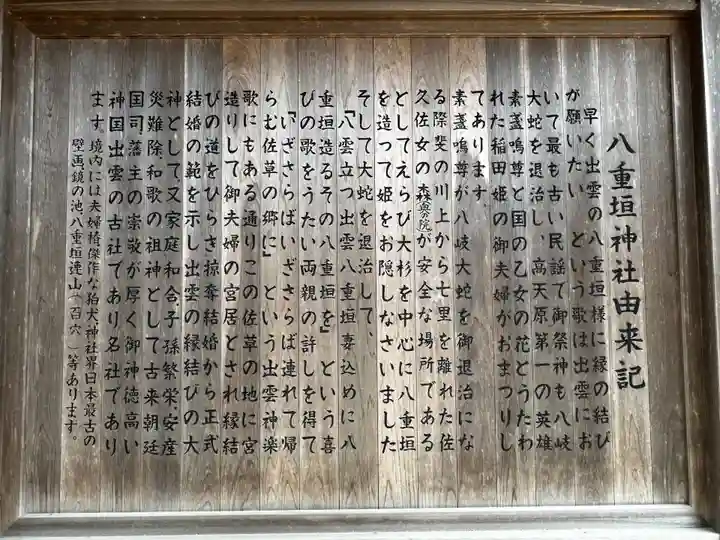 八重垣神社由来記
早く出雲の八重垣様に縁の結び
が願いたい という歌は出雲にお
いて最も古い民謡で御祭神も八岐
大蛇を退治し、高天原第一の英雄
素盞嗚尊と国の乙女の花とうたわ
れた稲田姫の御夫婦がおまつりし
てあります。
素盞嗚尊が八岐大蛇を御退治にな
る際斐の川上から七里を離れた佐
久佐女の森(奥の院)が安全な場所である
としてえらび大杉を中心に八重垣
を造って姫をお隠しなさいました
そして大蛇を退治して、
「八雲立つ出雲八重垣妻込めに八
重垣造るその八重垣を」という喜
びの歌をうたい両親の許しを得て
「いざさらばいざさらば連れて帰
らむ佐草の郷に」という出雲神楽
歌にもある通りこの佐草の地に宮
造りして御夫婦の宮居とされ縁結
びの道をひらき掠奪結婚から正式
結婚の範を示し出雲の縁結びの大
神として、又家庭和合、子孫繁栄、安産
災難除、和歌の祖神として古来朝廷
国司藩主の崇敬が厚く御神徳高い
神国出雲の古社であり名社であり
ます。境内には夫婦椿、傑作な狛犬、神社界日本最古の
壁画、鏡の池、八重垣連山(百穴)等あります。